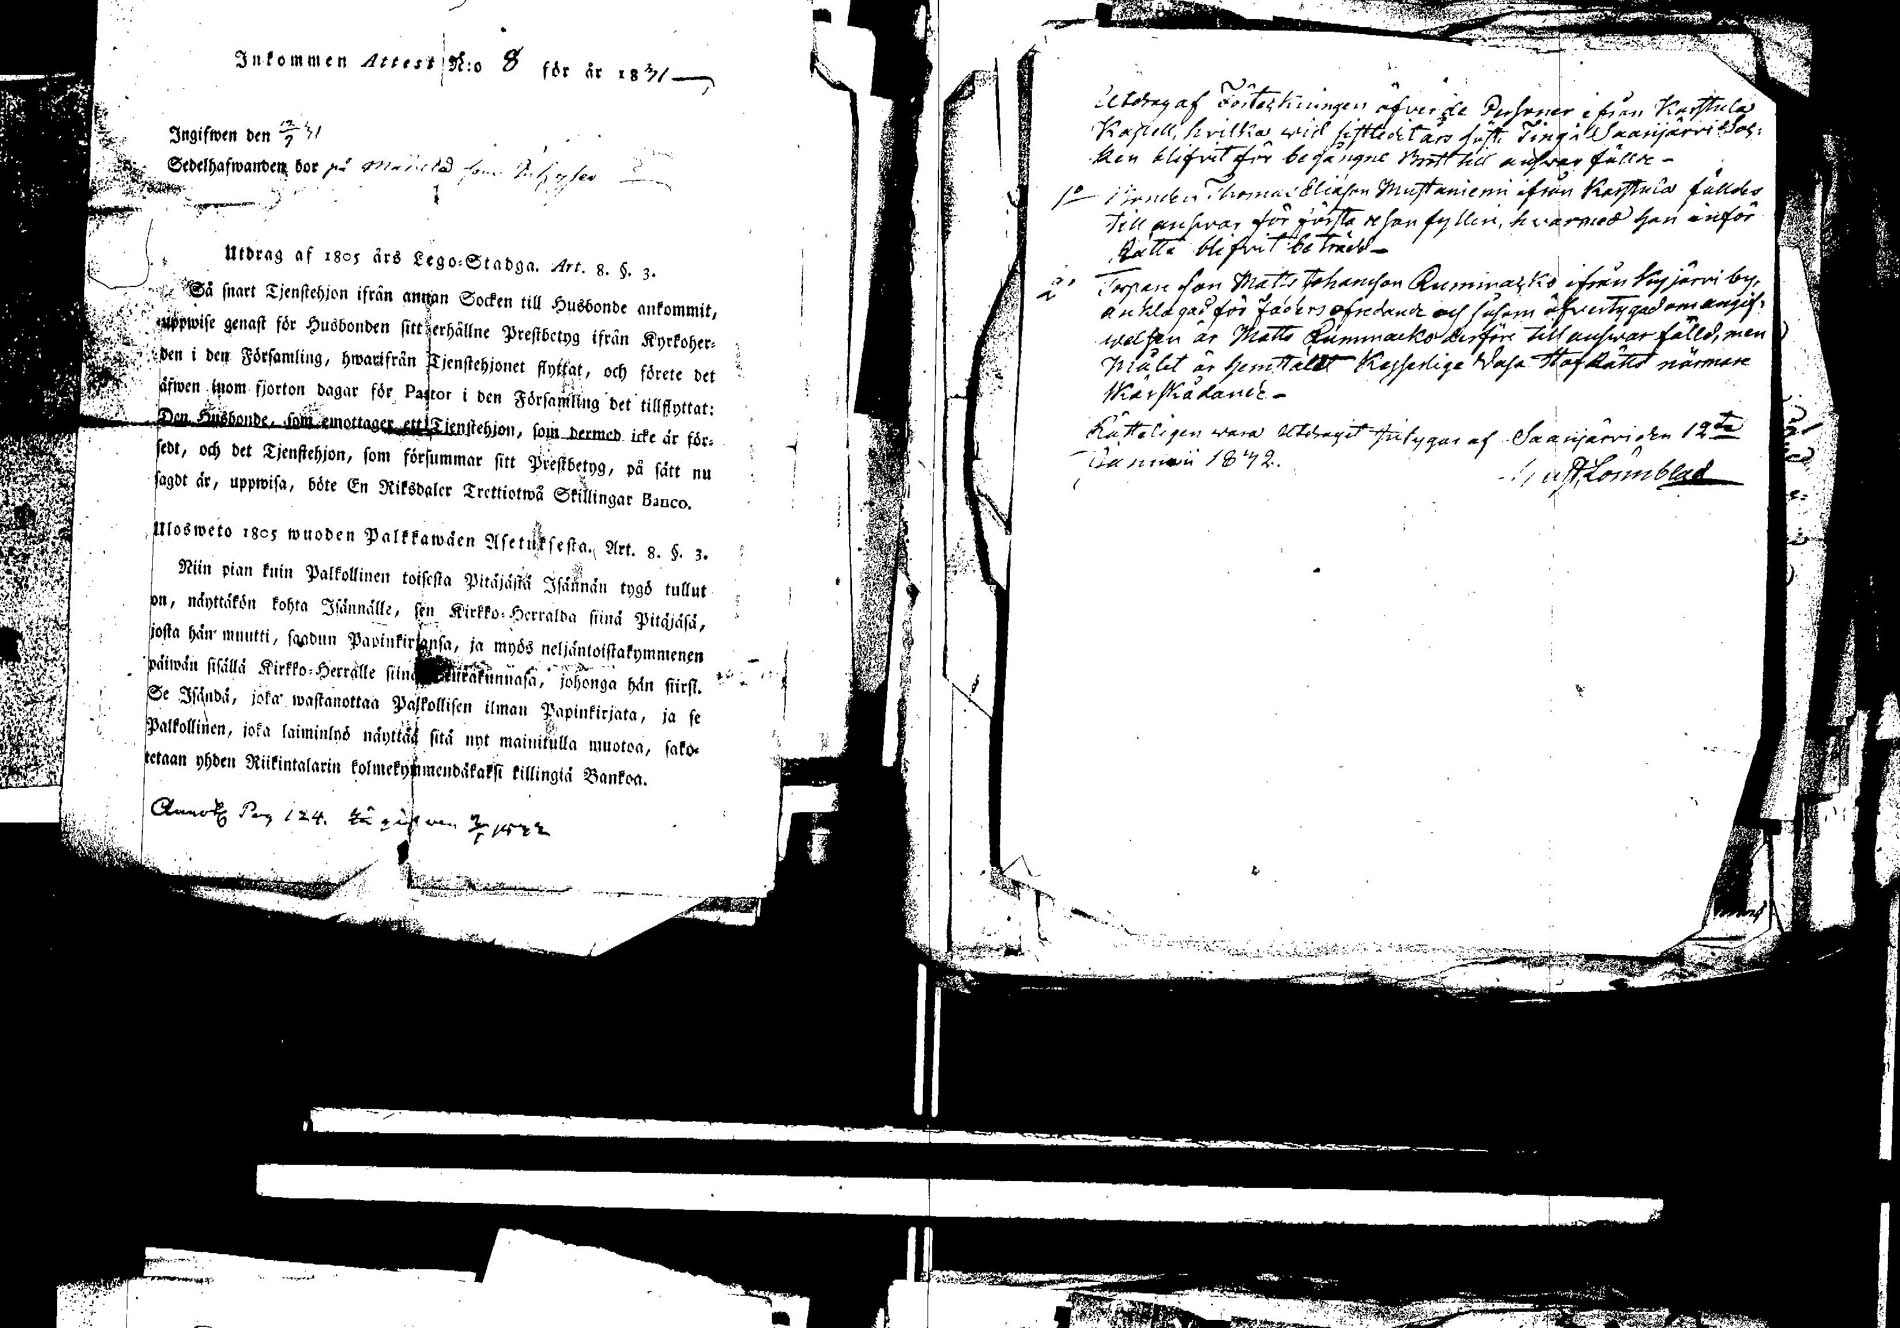 Inkommen Attest N:o 8 för år 1871
Ingifwen den 12/7 71
Sedelhafwanden bor på
Utdrag af 1805 års Lego-Stadga. Art. 8. §. 3.
Så snart Tjenstehjon ifrån annan Socken till Husbonde ankommit,
uppwise genast för Husbonden sitt erhållne Prestbetyg ifrån Kyrkoher-
den i den Församling, hwarifrån Tjenstehjonet flyttat, och förete det
äfwen inom fjorton dagar för Pastor i den Församling det tillflyttat:
Den Husbonde, som emottager ett Tjenstehjon, som dermed icke är för-
sedt, och det Tjenstehjon, som försummar sitt Prestbetyg, på sätt nu
sagdt är, uppwisa, böte En Riksdaler Trettiotwå Skillingar Banco.
Ulosweto 1805 wuoden Palkkawäen Asetuksesta. Art. 8. §. 3.
Niin pian kuin Palkollinen toisesta Pitäjästä Isännän tygö tullut
on, näyttäkön kohta Isännälle, sen Kirkko-Herralda siinä Pitäjäsä,
josta hän muutti, saadun Papinkirjansa, ja myös neljäntoistakymmenen
päiwän sisällä Kirkko-Herralle siinä Seurakunnasa, johonga hän siirsi.
Se Isändä, joka wastanottaa Palkollisen ilman Papinkirjata, ja se
Palkollinen, joka laiminlyö näyttää sitä nyt mainitulla muotoa, sako-
tetaan yhden Riikintalarin kolmekymmendäkaksi killingiä Bankoa.
Pag 124.
Utdrag af Förteckningen öfver de Personer ifrån Karstula
Kapell, hvilka wid sistledit års höst Ting i Saarijärvi Soc-
ken blifvit för begångne Brott till answar fällde -
1o Bonden Thomas Eliason Mustaniemi ifrån Karstula fälldes
till answar för första resan fylleri, hwarmed han inför
Rätta blifvit beträdd -
2o Torpare son Matts Johansson Rummacko ifrån Kyyjärvi by,
anklagad för Faders ofredande och såsom öfvertygad om angif-
welsen är Matts Rummacko derföre till answar fälld, men
Målet är hemställdt Kejserlige Wasa HofRätts närmare
skärskådande -
Rätteligen wara Utdraget betygar af Saarijärvi den 12te
Januarii 1842.
Lönnblad